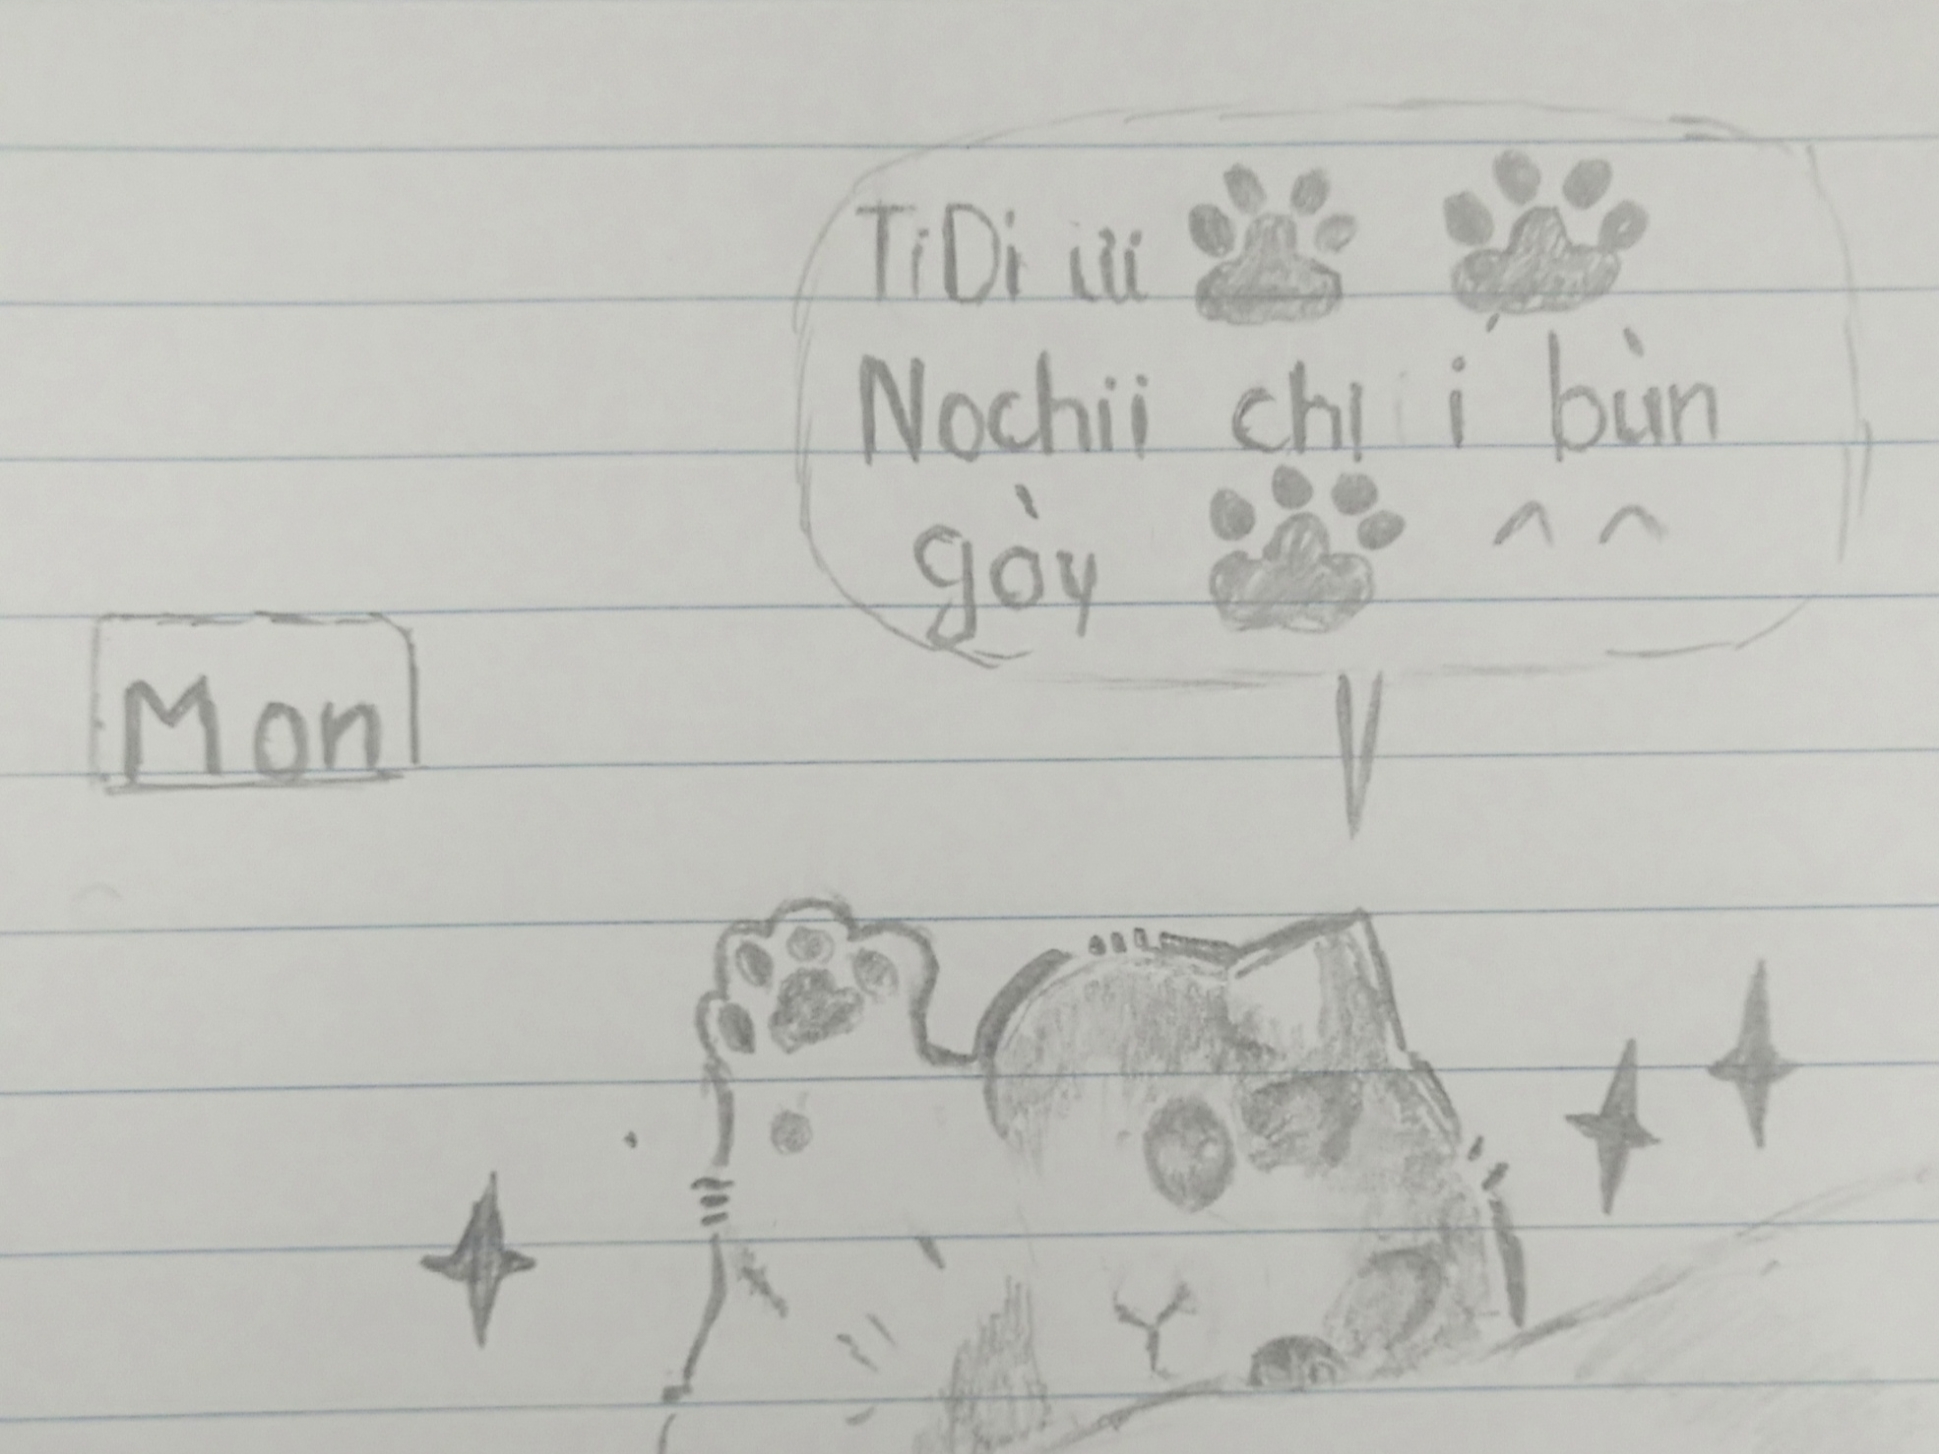 TiDi iu
Nochii chị í bùn
gòy ^ ^
Mon